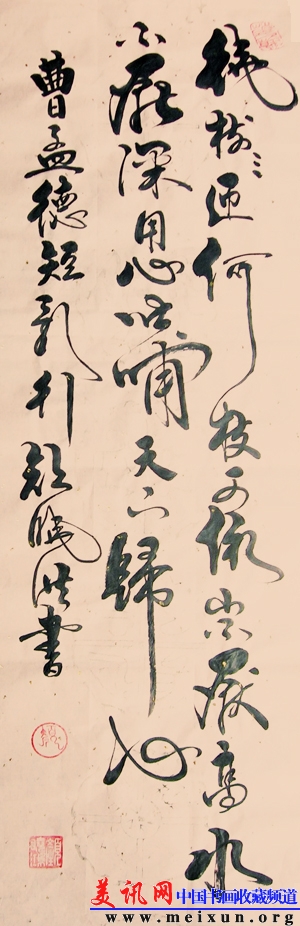 繞樹三匝何枝可依山不厭高水
不厭深周公吐哺天下歸心
曹孟德短歌行 洪書
美讯网中国书画收藏频道
www.meixun.org